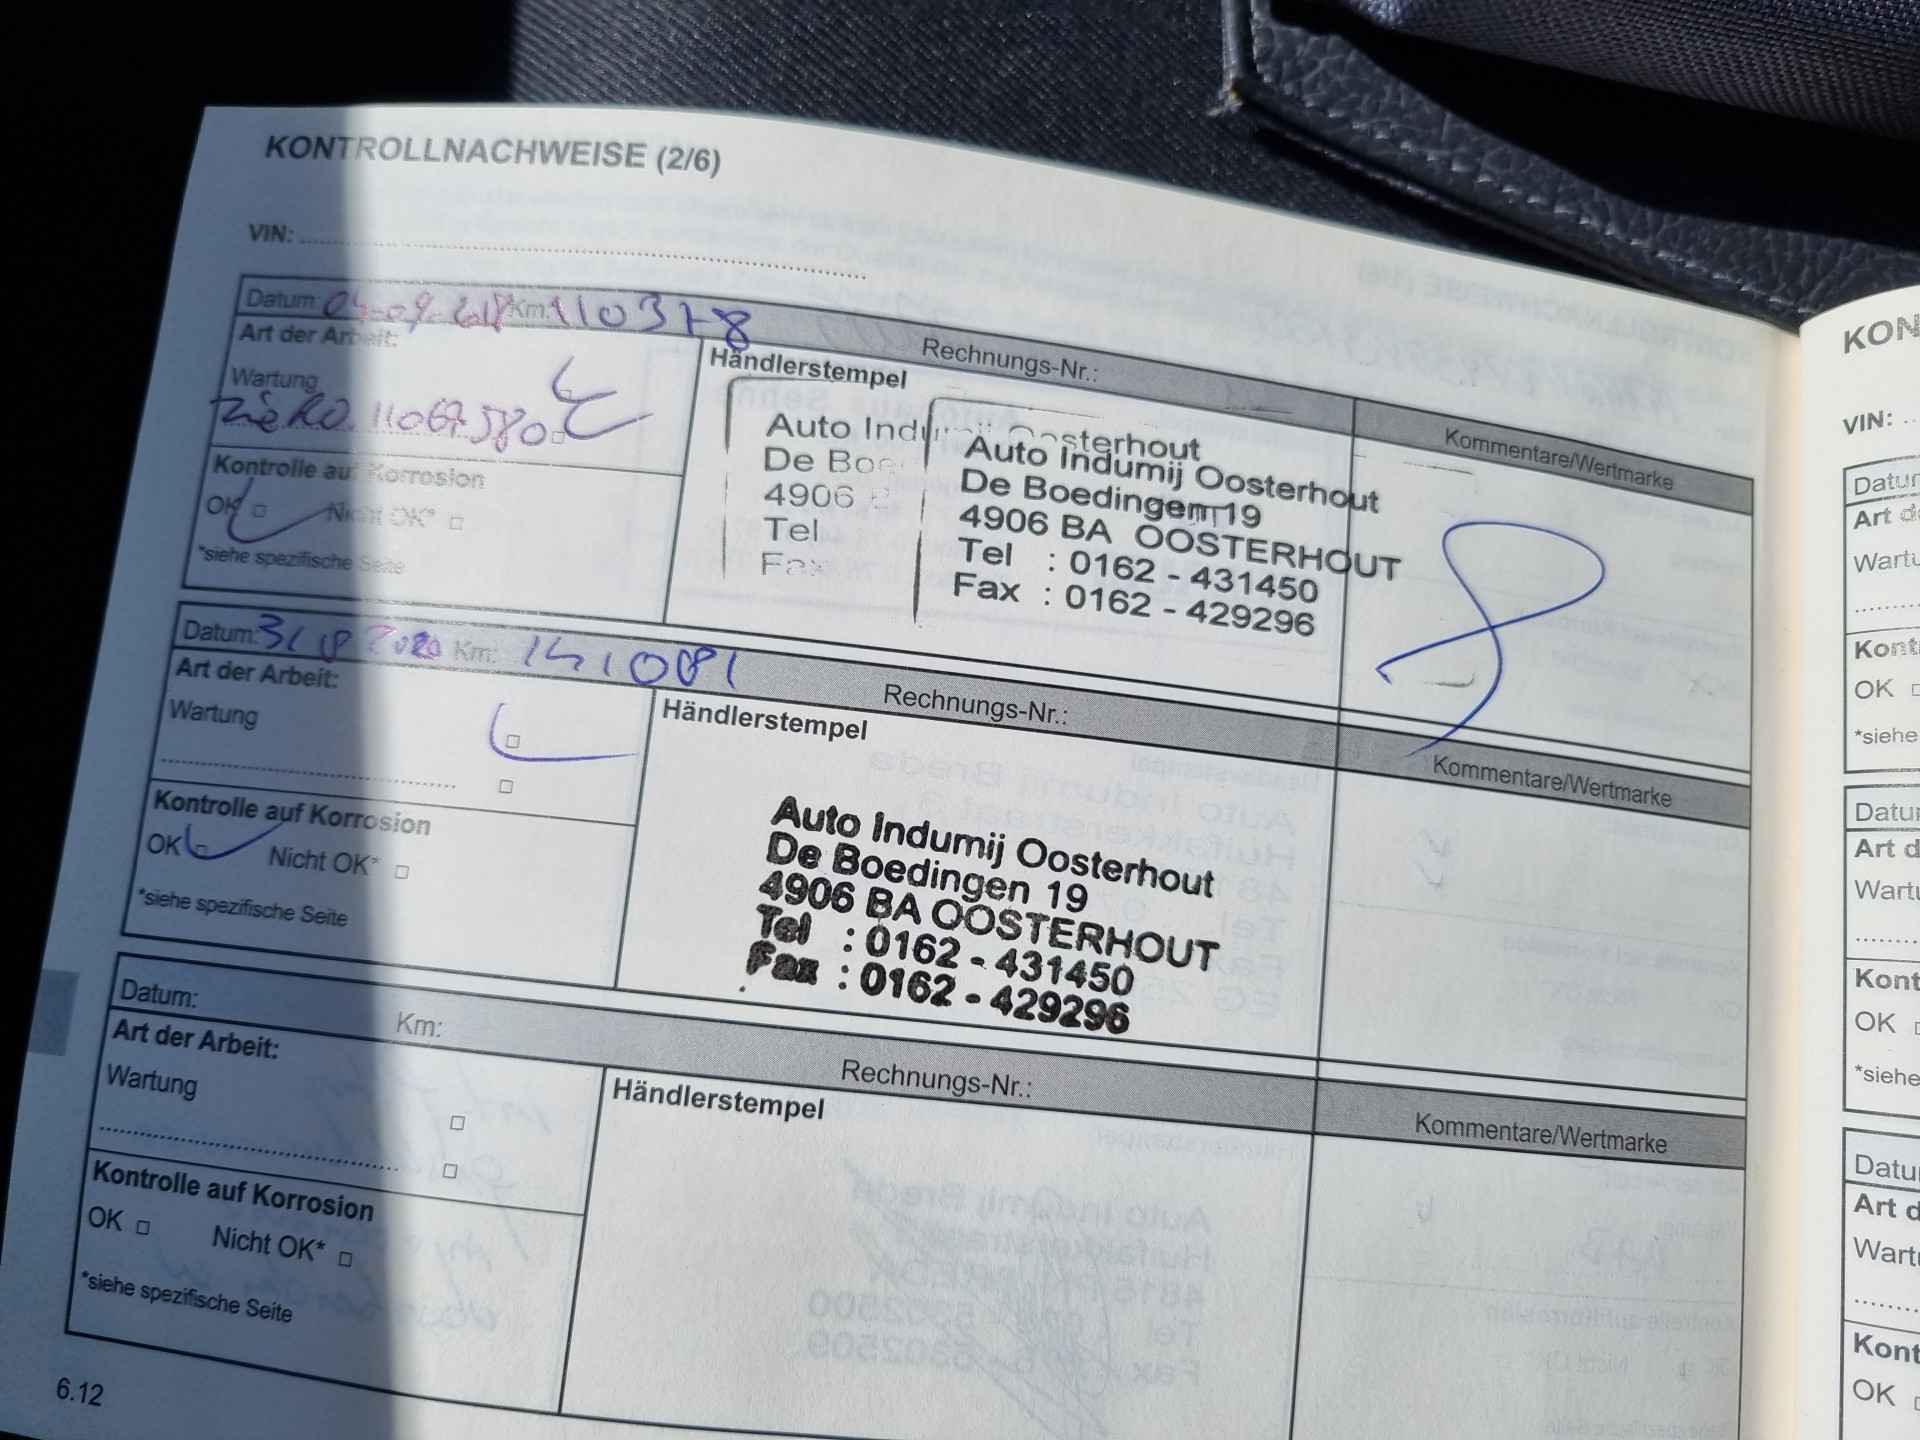 KONTROLLNACHWEISE (2/6)
VIN:
Datum: 04-09-2018 Km: 110378
Rechnungs-Nr.:
Kommentare/Wertmarke
Art der Arbeit:
Wartung
zie RO. 11067580
Kontrolle auf Korrosion
OK Nicht OK*
*siehe spezifische Seite
Händlerstempel
Auto Indumij Oosterhout
De Boe
4906
Tel
Fax
Auto Indumij Oosterhout
De Boedingen 19
4906 BA OOSTERHOUT
Tel : 0162 - 431450
Fax : 0162 - 429296
Datum: 31 8 2020 Km: 141081
Rechnungs-Nr.:
Kommentare/Wertmarke
Art der Arbeit:
Wartung
Kontrolle auf Korrosion
OK Nicht OK*
*siehe spezifische Seite
Händlerstempel
Auto Indumij Oosterhout
De Boedingen 19
4906 BA OOSTERHOUT
Tel : 0162 - 431450
Fax : 0162 - 429296
Datum: Km:
Rechnungs-Nr.:
Kommentare/Wertmarke
Art der Arbeit:
Wartung
Kontrolle auf Korrosion
OK Nicht OK*
*siehe spezifische Seite
Händlerstempel
6.12
KON
VIN:
Datu
Art d
Wartu
Kont
OK
*siehe
Datu
Art d
Wartu
Kont
OK
*siehe
Datu
Art d
Wartu
Kont
OK